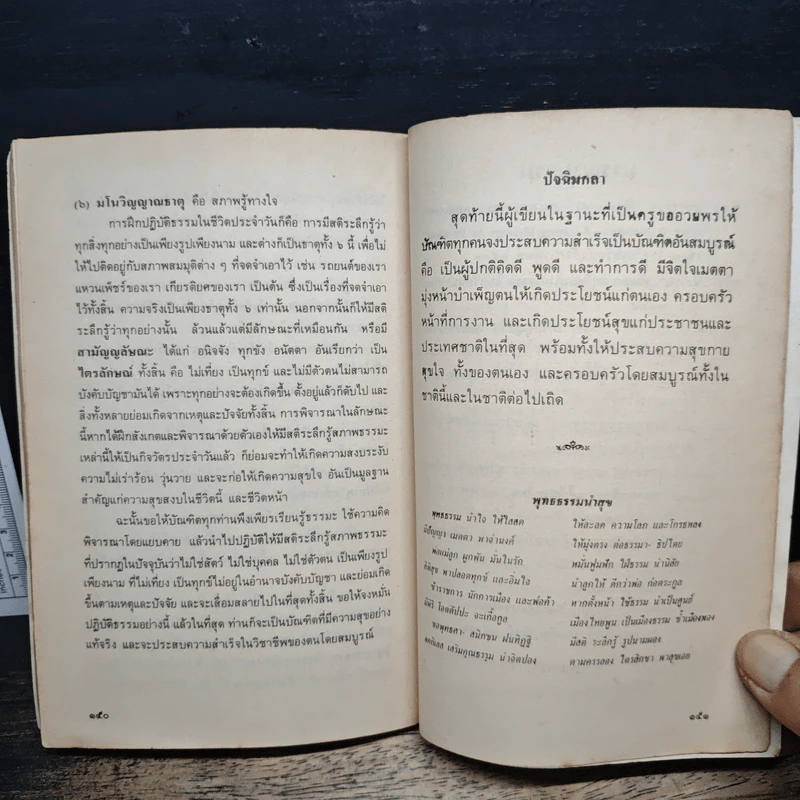 (๖) มโนวิญญาณธาตุ คือ สภาพรู้ทางใจ
การฝึกปฏิบัติธรรมในชีวิตประจำวันก็คือ การมีสติระลึกรู้ว่า
ทุกสิ่งทุกอย่างเป็นเพียงรูปเพียงนาม และต่างก็เป็นธาตุทั้ง ๖ นี้ เพื่อไม่
ให้ไปติดอยู่กับสภาพสมมุติต่าง ๆ ที่จดจำเอาไว้ เช่น รถยนต์ของเรา
แหวนเพ็ชร์ของเรา เกียรติยศของเรา เป็นต้น ซึ่งเป็นเรื่องที่จดจำเอา
ไว้ทั้งสิ้น ความจริงเป็นเพียงธาตุทั้ง ๖ เท่านั้น นอกจากนั้นก็ให้มีสติ
ระลึกรู้ว่าทุกอย่างนั้น ล้วนแล้วแต่มีลักษณะที่เหมือนกัน หรือมี
สามัญญลักษณะ ได้แก่ อนิจจัง ทุกขัง อนัตตา อันเรียกว่า เป็น
ไตรลักษณ์ ทั้งสิ้น คือ ไม่เที่ยง เป็นทุกข์ และไม่มีตัวตนไม่สามารถ
บังคับบัญชามันได้ เพราะทุกอย่างจะต้องเกิดขึ้น ตั้งอยู่แล้วก็ดับไป และ
สิ่งทั้งหลายย่อมเกิดจากเหตุและปัจจัยทั้งสิ้น การพิจารณาในลักษณะ
นี้หากได้ฝึกสังเกตและพิจารณาด้วยตัวเองให้มีสติระลึกรู้สภาพธรรมะ
เหล่านี้ให้เป็นกิจวัตรประจำวันแล้ว ก็ย่อมจะทำให้เกิดความสงบระงับ
ความไม่เร่าร้อน วุ่นวาย และจะก่อให้เกิดความสุขใจ อันเป็นมูลฐาน
สำคัญแก่ความสุขสงบในชีวิตนี้ และชีวิตหน้า
ฉะนั้นขอให้บัณฑิตทุกท่านพึงเพียรเรียนรู้ธรรมะ ใช้ความคิด
พิจารณาโดยแยบคาย แล้วนำไปปฏิบัติให้มีสติระลึกรู้สภาพธรรมะ
ที่ปรากฏในปัจจุบันว่าไม่ใช่สัตว์ ไม่ใช่บุคคล ไม่ใช่ตัวตน เป็นเพียงรูป
เพียงนาม ที่ไม่เที่ยง เป็นทุกข์ไม่อยู่ในอำนาจบังคับบัญชา และย่อมเกิด
ขึ้นตามเหตุและปัจจัย และจะเสื่อมสลายไปในที่สุดทั้งสิ้น ขอให้จงหมั่น
ปฏิบัติธรรมอย่างนี้ แล้วในที่สุด ท่านก็จะเป็นบัณฑิตที่มีความสุขอย่าง
แท้จริง และจะประสบความสำเร็จในวิชาชีพของตนโดยสมบูรณ์
๑๕๐
ปัจฉิมกถา
สุดท้ายนี้ผู้เขียนในฐานะที่เป็นครูขออวยพรให้
บัณฑิตทุกคนจงประสบความสำเร็จเป็นบัณฑิตอันสมบูรณ์
คือ เป็นผู้ปกติคิดดี พูดดี และทำการดี มีจิตใจเมตตา
มุ่งหน้าบำเพ็ญตนให้เกิดประโยชน์แก่ตนเอง ครอบครัว
หน้าที่การงาน และเกิดประโยชน์สุขแก่ประชาชนและ
ประเทศชาติในที่สุด พร้อมทั้งให้ประสบความสุขกาย
สุขใจ ทั้งของตนเอง และครอบครัวโดยสมบูรณ์ทั้งใน
ชาตินี้และในชาติต่อไปเถิด
พุทธธรรมนำสุข
พุทธธรรม นำใจ ให้ใสสด ให้ละลด ความโลภ และโกรธหลง
มีปัญญา เมตตา พาจำนงค์ ให้มุ่งตรง ต่อธรรมา- ธิปไตย
พ่อแม่ลูก ผูกพัน มั่นในรัก หมั่นฟูมฟัก ใฝ่ธรรม นำนิสัย
คิดสุข พาปลอดทุกข์ และอิ่มใจ นำลูกให้ ดีกว่าพ่อ ก่อตระกูล
ข้าราชการ นักการเมือง และพ่อค้า หากตั้งหน้า ใช้ธรรม นำเป็นศูนย์
โอตตัปปะ จะเกื้อกูล เมืองไทยพูน เป็นเมืองธรรม ซ้ำเมืองทอง
ขอพุทธศา- สนิกชน ฝนทิฏฐิ มีสติ ระลึกรู้ รูปนามผอง
เสริมคุณธรรม นำจิตปอง ตามครรลอง ไตรสิกขา พาสุขเอย
๑๕๑